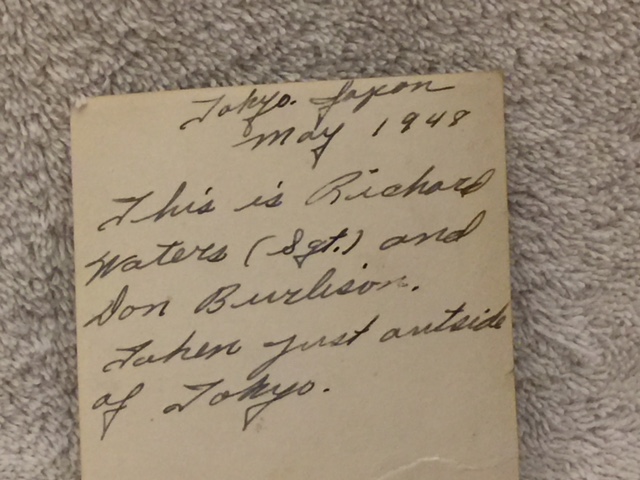 Tokyo. Japan
May 1948
This is Richard
Waters (Sgt.) and
Don Burlison.
Taken just outside
of Tokyo.